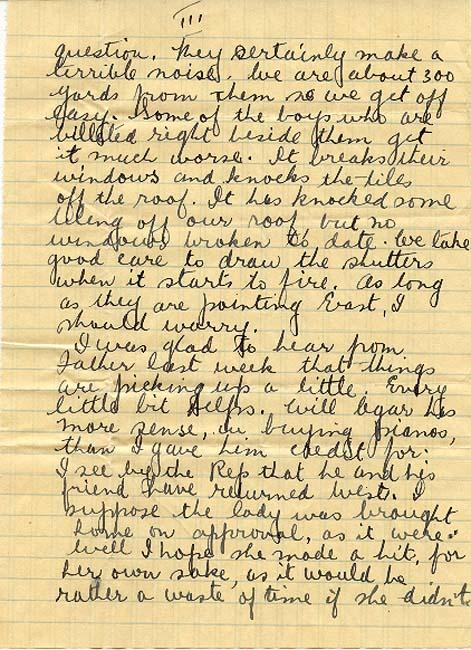 III
question. They certainly make a
terrible noise. We are about 300
yards from them so we get off
easy. Some of the boys who are
billeted right beside them get
it much worse. It breaks their
windows and knocks the tiles
off the roof. It has knocked some
tiling off our roof but no
windows broken to date. We take
good care to draw the shutters
when it starts to fire. As long
as they are pointing East, I
should worry.
I was glad to hear from
Father last week that things
are picking up a little. Every
little bit helps. Will has
more sense, in buying pianos,
than I gave him credit for.
I see by the Rep that he and his
friend have returned West. I
suppose the lady was brought
home on approval, as it were.
Well I hope she made a hit, for
her own sake, as it would be
rather a waste of time if she didn't